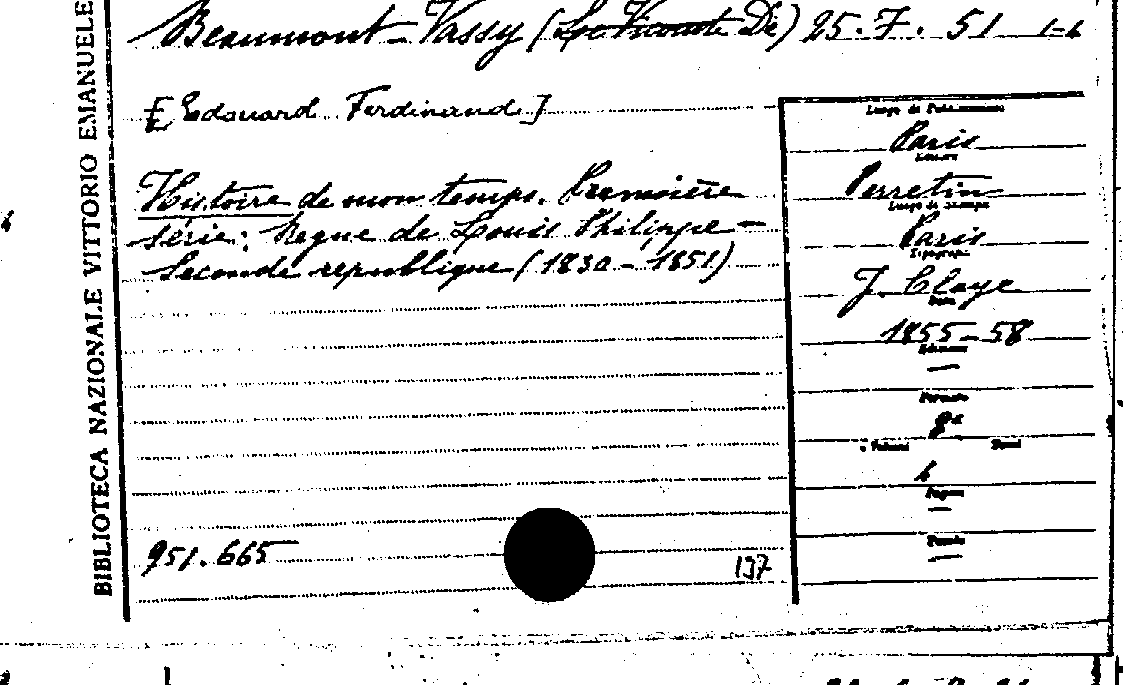 BIBLIOTECA NAZIONALE VITTORIO EMANUELE
Beaumont-Vassy (Le Vicomte De) 25.7.51 1-6
[Edouard Ferdinand]
Histoire de mon temps. Première
série: Regne de Louis Philippe –
Seconde republique (1830-1851)
951.665
137
Luogo di Pubblicazione
Paris
Editore
Perrotin
Luogo di stampa
Paris
Tipografo
J. Claye
Data
1855-58
Edizione
—
Formato
8°
Volumi Tomi
6
Pagine
—
Tavole
—